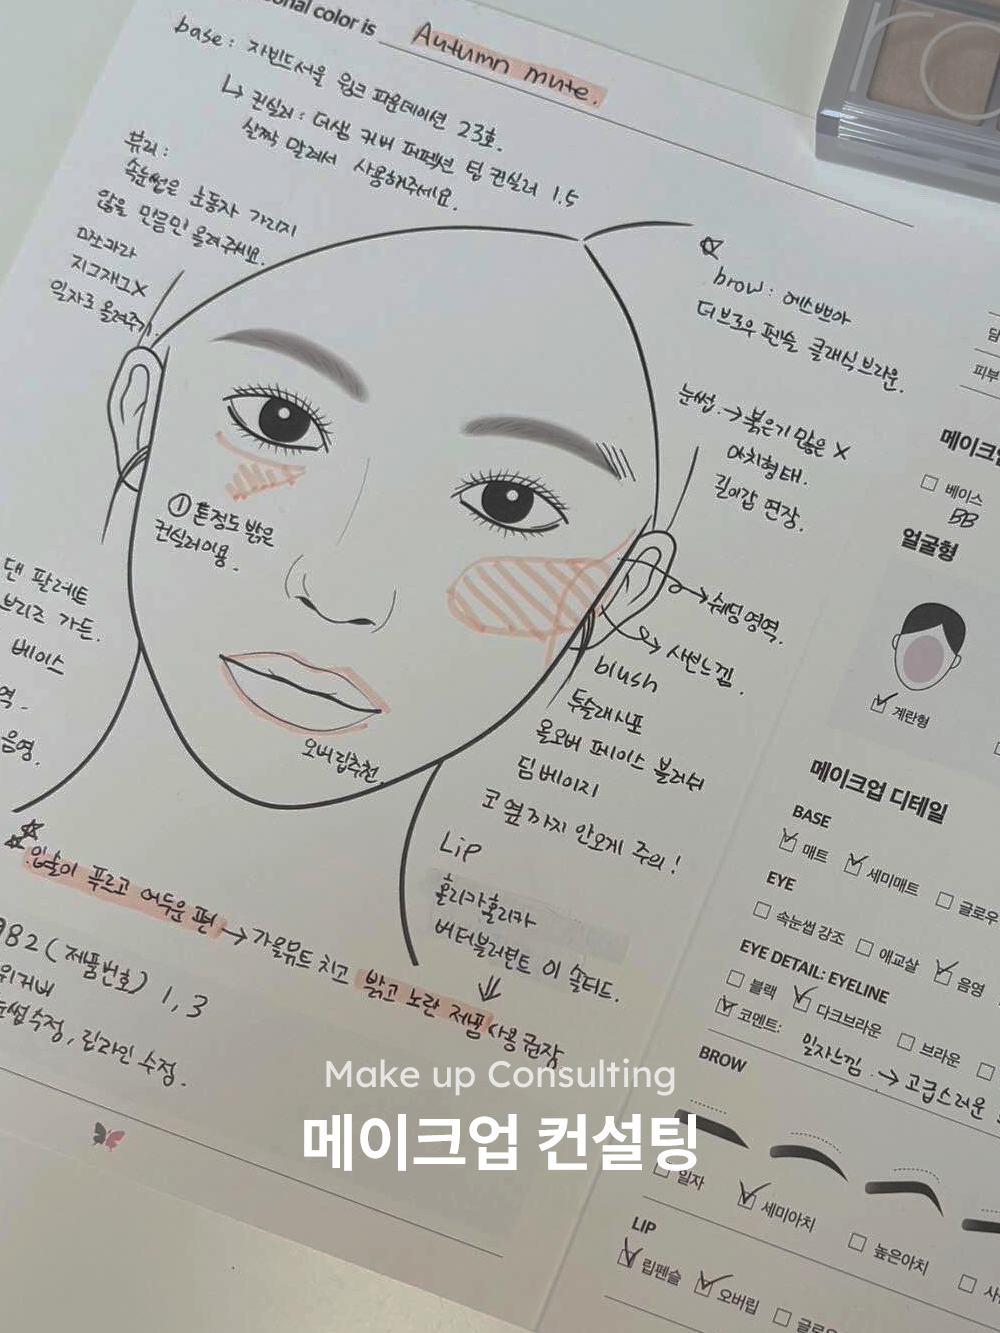 onal color is Autumn mute.
base : 자빈드서울 윙크 파운데이션 23호.
↳ 컨실러 : 더샘 커버 퍼펙션 팁 컨실러 1.5
살짝 말려서 사용해주세요.
뷰러 :
속눈썹은 눈동자 가리지
않을 만큼만 올려주세요.
마스카라
지그재그 X
일자로 올려주기.
☆
brow : 에스쁘아
더브로우 펜슬 클래식브라운.
눈썹. → 붉은기 많은 X
아치형태.
길이감 연장.
① 톤정도 밝은
컨실러이용.
댄 팔레트
브리즈 가든.
베이스
역.
음영.
→ 쉐딩영역.
→ 사선느낌.
blush
투슬래시포
올오버 페이스 블러쉬
딤베이지
코 옆까지 안오게 주의!
오버립추천.
Lip
홀리카홀리카
버터블러틴트 이 솔티드.
☆ 입술이 푸르고 어두운 편 → 가을뮤트 치고 밝고 노란 제품 사용 권장
982 (제품번호) 1, 3
위커버
눈썹수정, 립라인 수정.
담
피부
메이크업
□ 베이스
BB
얼굴형
☑ 계란형
메이크업 디테일
BASE
☑ 매트 ☑ 세미매트 □ 글로우
EYE
□ 속눈썹 강조 □ 애교살 ☑ 음영
EYE DETAIL: EYELINE
□ 블랙 ☑ 다크브라운 □ 브라운
☑ 코멘트: 일자느낌. → 고급스러운
BROW
□ 일자 ☑ 세미아치 □ 높은아치
LIP
☑ 립펜슬 ☑ 오버립 □ 글로우
Make up Consulting
메이크업 컨설팅